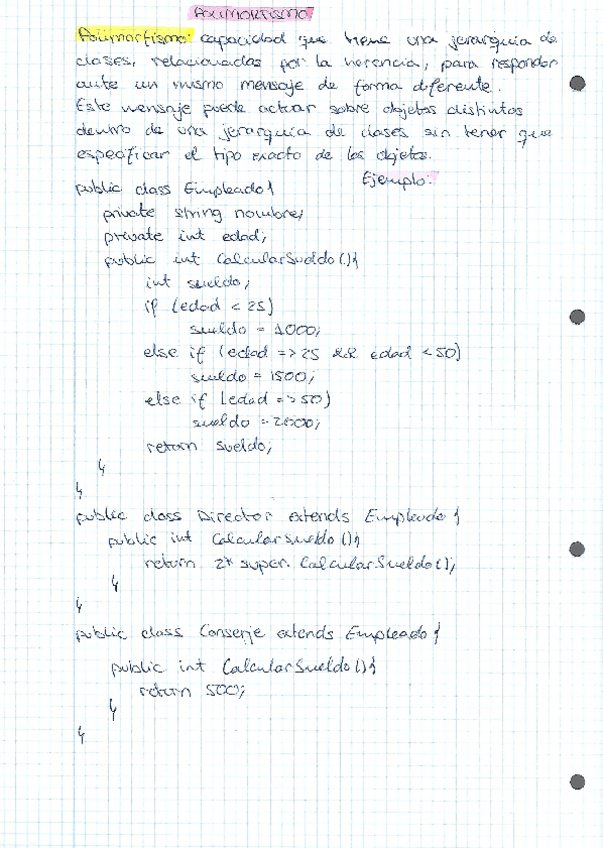 POLIMORFISMO
Polimorfismo: capacidad que tiene una jerarquía de
clases, relacionadas por la herencia, para responder
ante un mismo mensaje de forma diferente.
Este mensaje puede actuar sobre objetos distintos
dentro de una jerarquía de clases sin tener que
especificar el tipo exacto de los objetos.
Ejemplo:
public class Empleado{
private string nombre;
private int edad;
public int CalcularSueldo(){
int sueldo;
if (edad < 25)
sueldo = 1000;
else if (edad => 25 && edad < 50)
sueldo = 1500;
else if (edad => 50)
sueldo = 2000;
return sueldo;
}
}
public class Director extends Empleado{
public int CalcularSueldo(){
return 2* super.CalcularSueldo();
}
}
public class Conserje extends Empleado{
public int CalcularSueldo(){
return 500;
}
}